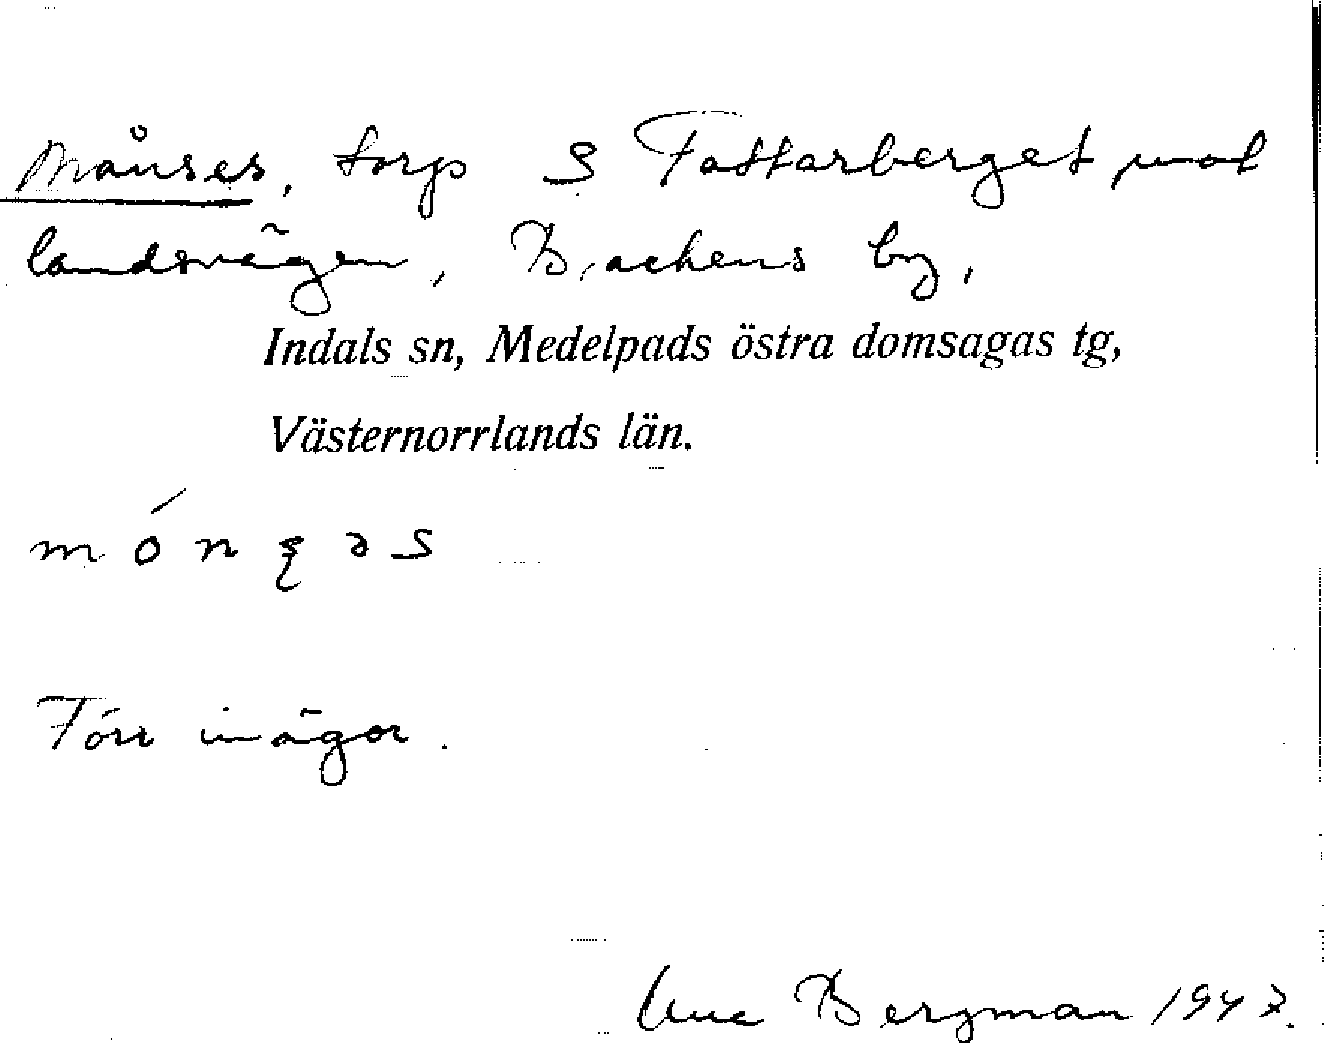 Månses, torp S Fattarberget mot
landsvägen, Backens by,
Indals sn, Medelpads östra domsagas tg,
Västernorrlands län.
Förr inägor.
Bergman 1947.